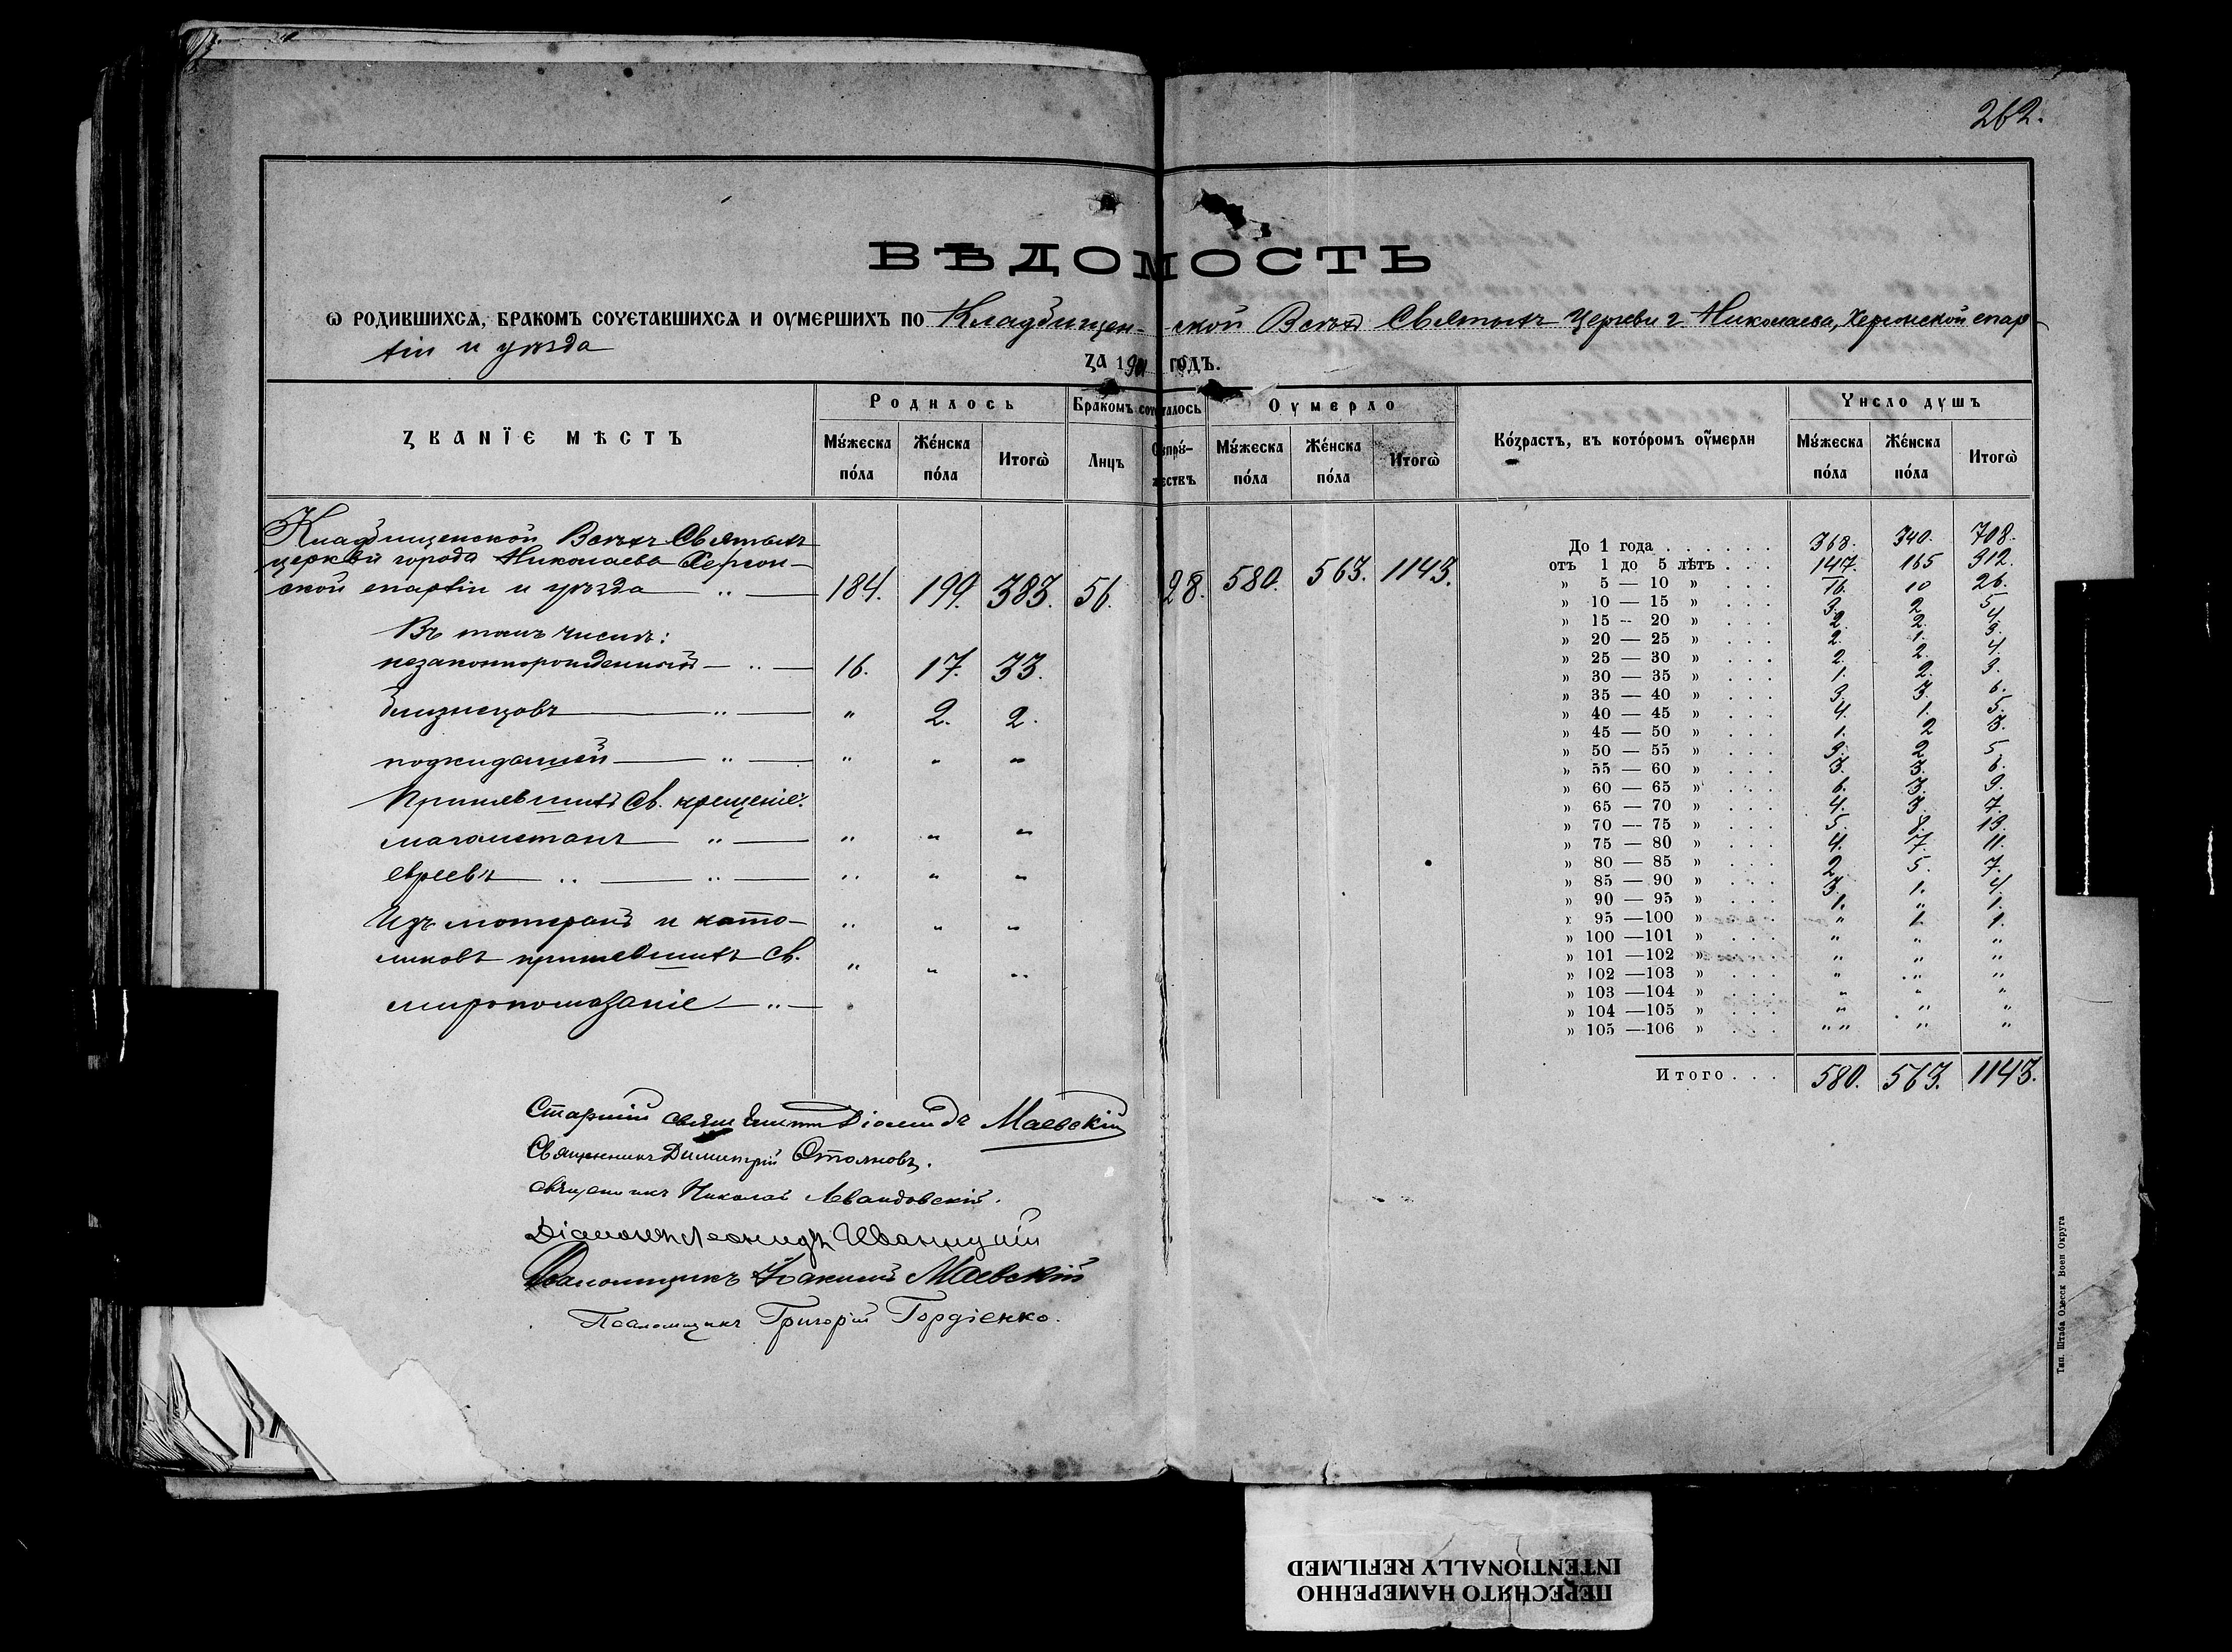 262.
ВѢДОМОСТЬ
Ѡ РОДИВШИХСѦ, БРАКОМЪ СОЧЕТАВШИХСѦ И ОУМЕРШИХЪ ПО Кладбищен- ской Всѣхъ Святыхъ церкви г. Николаева, Херсонской епар-
хіи и уѣзда
ЗА 1901 ГОДЪ.
ЗВАНЇЕ МѢСТЪ
Родилось
Бракомъ сочеталось
Оумерло
Возрастъ, въ которомъ оумерли
Число душъ
Мужеска пола Женска пола Итогѡ Лицъ Супружествъ Мужеска пола Женска пола Итогѡ Мужеска пола Женска пола Итогѡ
Кладбищенской Всѣхъ Святыхъ
церкви города Николаева Херсон-
ской епархіи и уѣзда — „ — 184. 199. 383. 56. 28. 580. 563. 1143.
Въ томъ числѣ:
незаконнорожденныхъ — „ — 16. 17. 33.
близнецовъ — „ — „ 2. 2.
подкидышей — „ — „ „ „
Принявшихъ Св. крещеніе:
магометанъ — „ — „ „ „
евреевъ „ — „ — „ „ „
Изъ лютеранъ и като- „ „ „
ликовъ принявшихъ Св. „ „ „
миропомазаніе — „ —
До 1 года . . . . . . 368. 340. 708.
отъ 1 до 5 лѣтъ . . . 147. 165 312.
» 5 — 10 » . . . 16. 10 26.
» 10 — 15 » . . . 3. 2 5
» 15 — 20 » . . . 2. 2. 4.
» 20 — 25 » . . . 2. 1. 3.
» 25 — 30 » . . . 2. 2. 4.
» 30 — 35 » . . . 1. 2. 3.
» 35 — 40 » . . . 3. 3. 6.
» 40 — 45 » . . . 4. 1. 5.
» 45 — 50 » . . . 1. 2 3.
» 50 — 55 » . . . 3. 2 5.
» 55 — 60 » . . . 3. 3. 6.
» 60 — 65 » . . . 6. 3. 9.
» 65 — 70 » . . . 4. 3 7.
» 70 — 75 » . . . 5. 8. 13.
» 75 — 80 » . . . 4. 7. 11.
» 80 — 85 » . . . 2. 5. 7.
» 85 — 90 » . . . 3. 1. 4.
» 90 — 95 » . . . 1. „ 1.
» 95 —100 » . . . „ 1. 1.
» 100 —101 » . . . „ „ „
» 101 —102 » . . . „ „ „
» 102 —103 » . . . „ „ „
» 103 —104 » . . . „ „ „
» 104 —105 » . . . „ „ „
» 105 —106 » . . . „ „ „ „
Итого . . . 580. 563. 1143.
Старшій священникъ Діомидъ Маевскій
Священникъ Димитрій Стояновъ.
священникъ Николай Левандовскій.
Діаконъ Леонидъ Иваницкій
Псаломщикъ Іоакимъ Маевскій
Псаломщикъ Григорій Гордіенко.
Тип. Штаба Одесск Воен Округа
ПЕРЕСНЯТО НАМЕРЕННО
INTENTIONALLY REFILMED